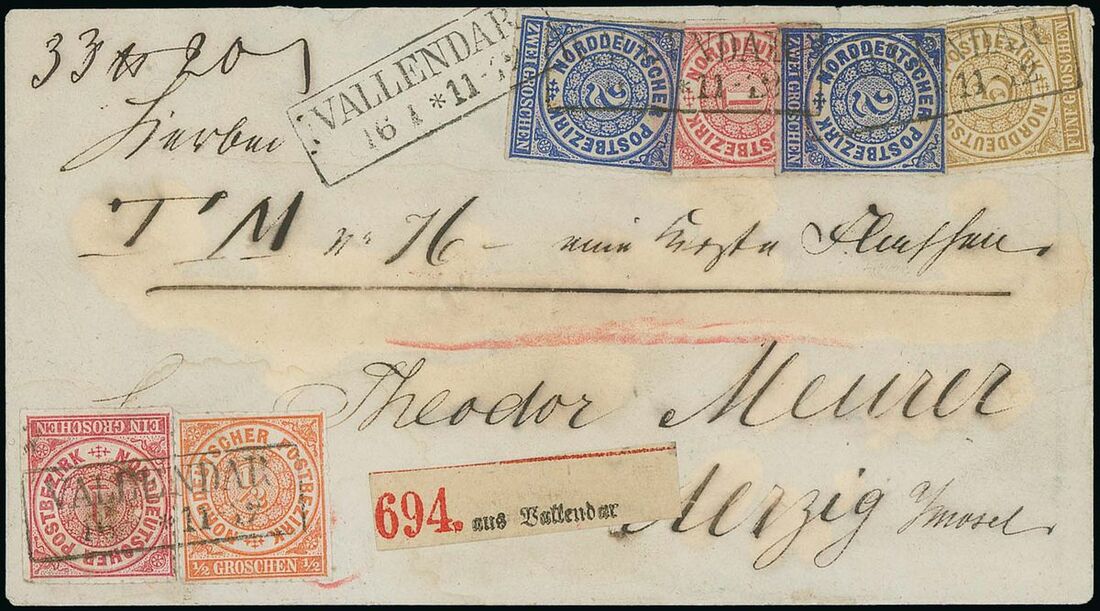 33 20
VALLENDAR
16 1 * 11 - 12
ZWEI GROSCHEN
NORDDEUTSCHER POSTBEZIRK
2
NORDDEUTSCHER POSTBEZIRK
1
ZWEI GROSCHEN
NORDDEUTSCHER POSTBEZIRK
2
NORDDEUTSCHER POSTBEZIRK
5
FÜNF GROSCHEN
Hierbei
T M No 76 – eine Kiste Flaschen
Theodor Meurer
Merzig
694. aus Vallendar
EIN GROSCHEN
NORDDEUTSCHER POSTBEZIRK
VALLENDAR
* 11
NORDDEUTSCHER POSTBEZIRK
1/2 GROSCHEN 1/2